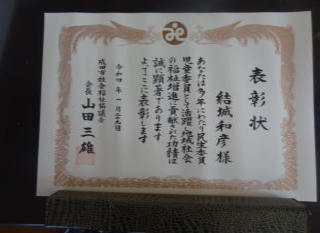 表彰状
結城和彦様
あなたは多年にわたり民生委員
児童委員として活躍し地域社会
の福祉増進に貢献された功績は
誠に顕著であります
よってここに表彰します
令和四年一月二十九日
成田市社会福祉協議会
会長 山田三雄